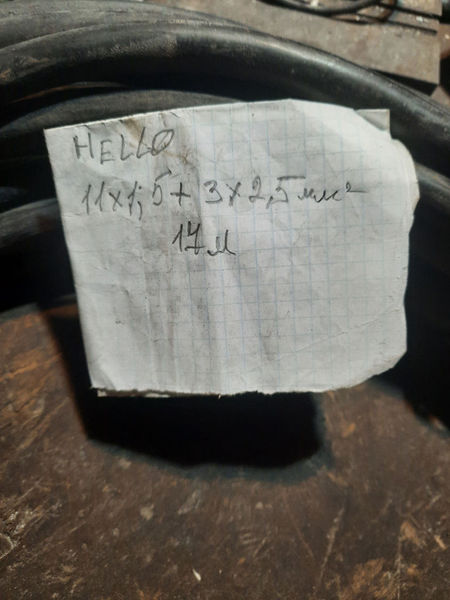 HELLO
11x1,5 + 3x2,5 мм²
17м